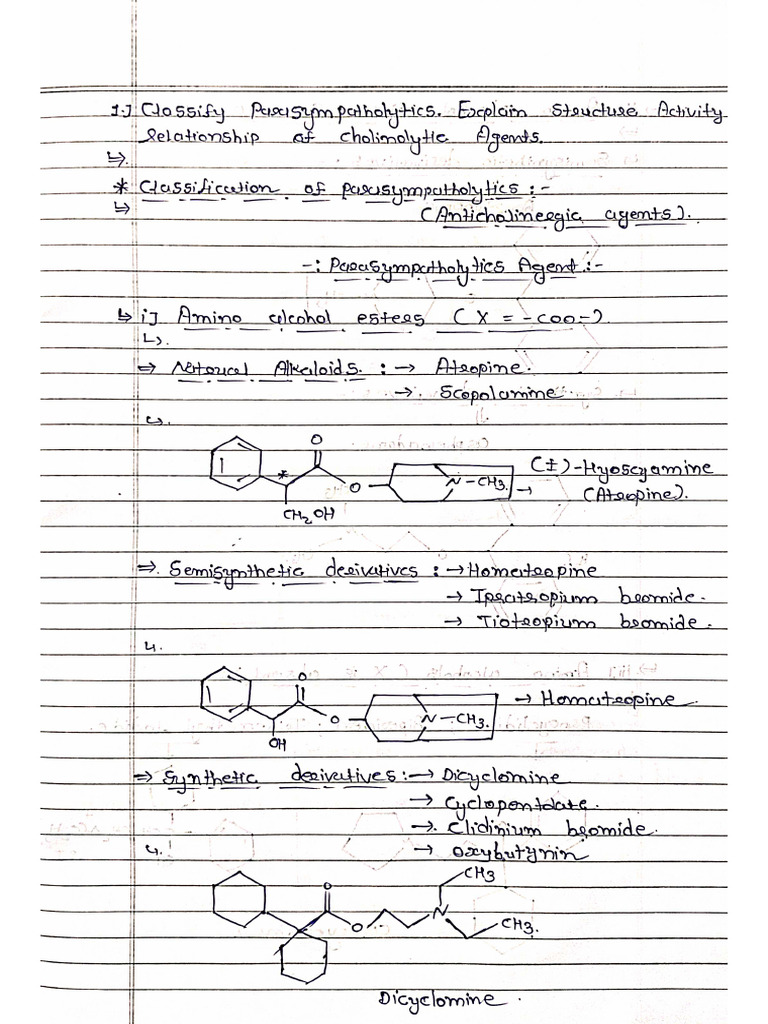 1.] Classify Parasympatholytics. Explain Structure Activity
Relationship of Cholinolytic Agents.
* Classification of parasympatholytics :-
(Anticholinergic agents).
-: Parasympatholytics Agent :-
i] Amino alcohol esters ( X = -COO-)
⇒ Natural Alkaloids. : → Atropine.
→ Scopolamine.
O
(±)-Hyoscyamine
* O N-CH3. → (Atropine).
CH2OH
⇒ Semisynthetic derivatives : → Homatropine
→ Ipratropium bromide.
→ Tiotropium bromide.
O
→ Homatropine
O N-CH3.
OH
⇒ Synthetic derivatives : → Dicyclomine
→ Cyclopentolate.
→ Clidinium bromide.
→ Oxybutynin
CH3
O
N
O CH3.
Dicyclomine.